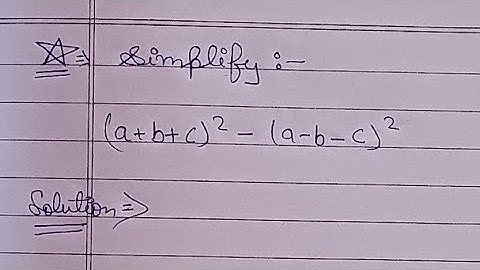 ☆⇒ Simplify :-
(a+b+c)² - (a-b-c)²
Solution ⇒